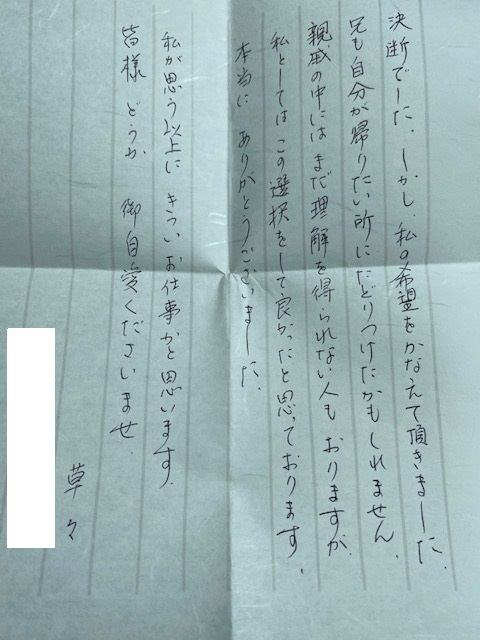 決断でした。しかし、私の希望をかなえて頂きました。
兄も自分が帰りたい所にたどりつけたかもしれません。
親戚の中にはまだ理解を得られない人もおりますが
私としてはこの選択をして良かったと思っております。
本当に ありがとうございました。
私が思う以上に きついお仕事かと思います。
皆様 どうか 御自愛くださいませ。
草々